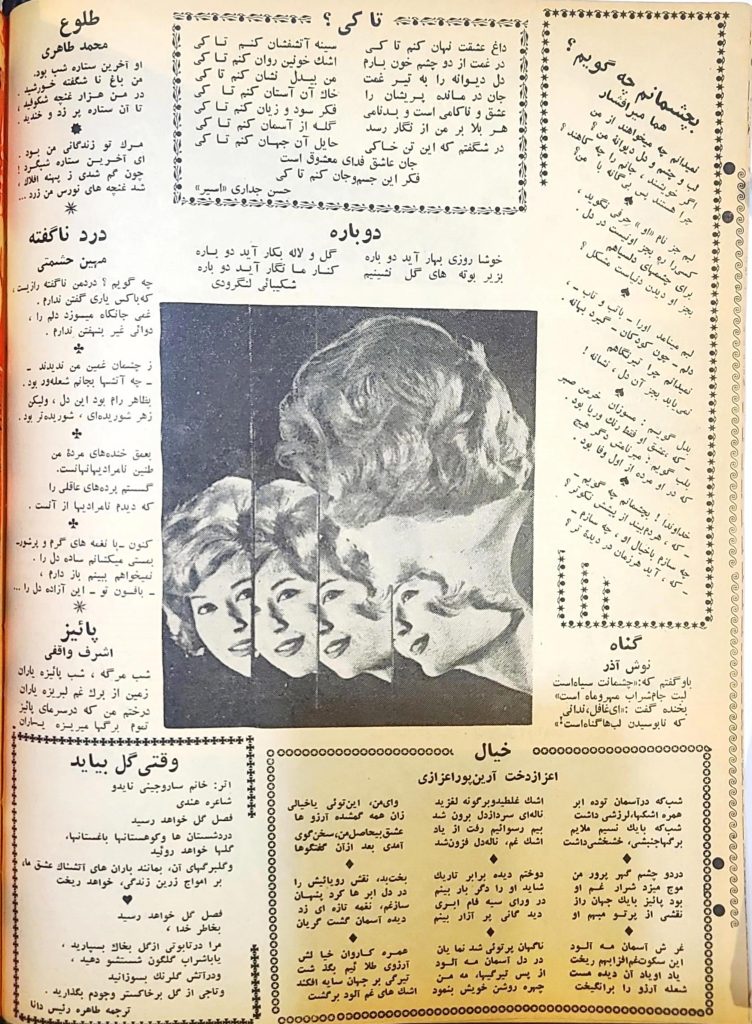 بچشمانم چه گویم ؟
هما میرافشار
نمیدانم چه میخواهند از من
لب و چشم و دل دیوانهٔ من ؟
اگر خیرشند ، جانم را چه کاهند ؟
چرا هستند پس بی گانه با من؟
لبم جز نام «او» حرفی نگوید ،
کسی را ره بجز او نیست در دل .
برای چشمهای دلسیاهم
بجز او دیدن دنیاست مشکل ؟
لبم مینامد اورا - باتب و تاب - ،
دلم - چون کودکان - گیرد بهانه .
نمیدانم چرا تیرنگاهم
نمی یابد بجز آن دل ، نشانه !
بدل گویم : مسوزان خرمن صبر
- که عشق او فقط رنگ وریا بود .
بلب گویم : مبر نامش دگر هیچ
که در او مرده از اول وفا بود .
خداوندا ! بچشمانم چه گویم -
- که ، هردم ایند از پیش نکوتر ؟
چه سازم باخیال او ، چه سازم -
- که ، آید هرزمان در دیدهٔ تر ؟
تا کی ؟
داغ عشقت نهان کنم تا کی
سینه آتشفشان کنم تا کی
در غمت از دو چشم خون بارم
اشك خونین روان کنم تا کی
دل دیوانه را به تیر غمت
من بیدل نشان کنم تا کی
جان در مانده پریشان را
خاك آن آستان کنم تا کی
عشق و ناکامی است و بدنامی
فکر سود و زیان کنم تا کی
هر بلا بر من از نگار رسد
گله از آسمان کنم تا کی
در شگفتم که این تن خاکی
حایل آن جهان کنم تا کی
جان عاشق فدای معشوق است
فکر این جسم و جان کنم تا کی
حسن جداری «اسیر»
طلوع
محمد طاهری
او آخرین ستاره شب بود.
من باغ نا شگفته خورشید .
در من هزار غنچه شکوفید ،
تا آن ستاره پر زد و خندید .
مرگ تو زندگانی من بود .
ای آخرین ستاره شبگرد !
چون گم شدی ز پهنه افلاك ،
شد غنچه های نورس من زرد ...
دو باره
خوشا روزی بهار آید دو باره
گل و لاله بکار آید دو باره
بزیر بوته های گل نشینیم
کنار ما نگار آید دو باره
شکیبائی لنگرودی
درد ناگفته
مهین حشمتی
چه گویم ؟ دردمن ناگفته رازیست ،
که باکس یاری گفتن ندارم .
غمی جانکاه میسوزد دلم را ،
دوائی غیر بنهفتن ندارم .
ز چشمان غمین من ندیدند -
- چه آتشها بجانم شعله ور بود .
بظاهر رام بود این دل ، ولیکن
زهر شوریده ای ، شوریده تر بود .
بعمق خنده های مردهٔ من
طنین نامرادیها نهانست.
گسستم پرده های عاقلی را
که دیدم نامرادیها از آنست .
کنون - با نغمه های گرم و پرشور-
بمستی میکشانم ساده دل را .
نمیخواهم ببینم باز دارم ،
- بافسون تو - این آزاده دل را ...
پائیز
اشرف واقفی
شب مرگه ، شب پائیزه یاران
زمین از برك غم لبریزه یاران
درختم من که درسرمای پائیز
تموم برگها میریزه یاران
گناه
نوش آذر
باو گفتم که: «چشمانت سیاه است
لبت جام شراب مهروماه است»
بخنده گفت : «ای غافل، ندانی
که نابوسیدن لب ها گناه است!»
وقتی گل بیاید
اثر: خانم ساروجینی نایدو
شاعره هندی
فصل گل خواهد رسید
دردشتستان ها و کوهستانها باغستانها،
گلها خواهد روئید
وگلبرگهای آن، بمانند باران های آتشناك عشق ما،
بر امواج زرین زندگی، خواهد ریخت
فصل گل خواهد رسید
بخاطر خدا ،
مرا درتابوتی ازگل بخاك بسپارید ،
یاباشراب گلگون شستشو دهید ،
ودرآتش گلرنك بسوزانید
وتاجی از گل برخاکستر وجودم بگذارید .
ترجمه طاهره رئیس دانا
خیال
اعزازدخت آرین پور اعزازی
شب که درآسمان توده ابر
همره اشکها، لرزشی داشت
شب که بایك نسیم ملایم
برگها جنبشی، خشخشی داشت
اشك غلطید و برگونه لغزید
ناله ای سردازدل برون شد
بیم رسوائیم رفت از یاد
اشك غم، ناله دل فزون شد
وای من، این توئی یاخیالی
زان همه گمشده آرزو ها
عشق بیحاصل من، سخن گوی
آمدی بعد ازآن گفتگوها
دردو چشم گهر پرور من
موج میزد شرار غم او
بود پائیز بایك جهان راز
نقشی از پرتو مبهم او
دوختم دیده برابر تاریك
شاید او را دگر بار بینم
در ورای سیه فام ابری
دید گانی پر آزار بینم
بخت بد، نقش رویائیش را
در دل ابر ها کرد پنهان
سازغم، نغمه تازه ای زد
دیده آسمان گشت گریان
غر ش آسمان مه آلود
این سکوت غم افزا بهم ریخت
یاد اویاد آن دیده مست
شعله آرزو را برانگیخت
ناگهان پرتوئی شد نما یان
در دل آسمان مه آلود
از پس تیرگیها، مه من
چهره روشن خویش بنمود
همره کاروان خیا لش
آرزوی طلا ئیم بگذ شت
تیرگی بر جهان سایه افکند
اشك های غم آلود برگشت